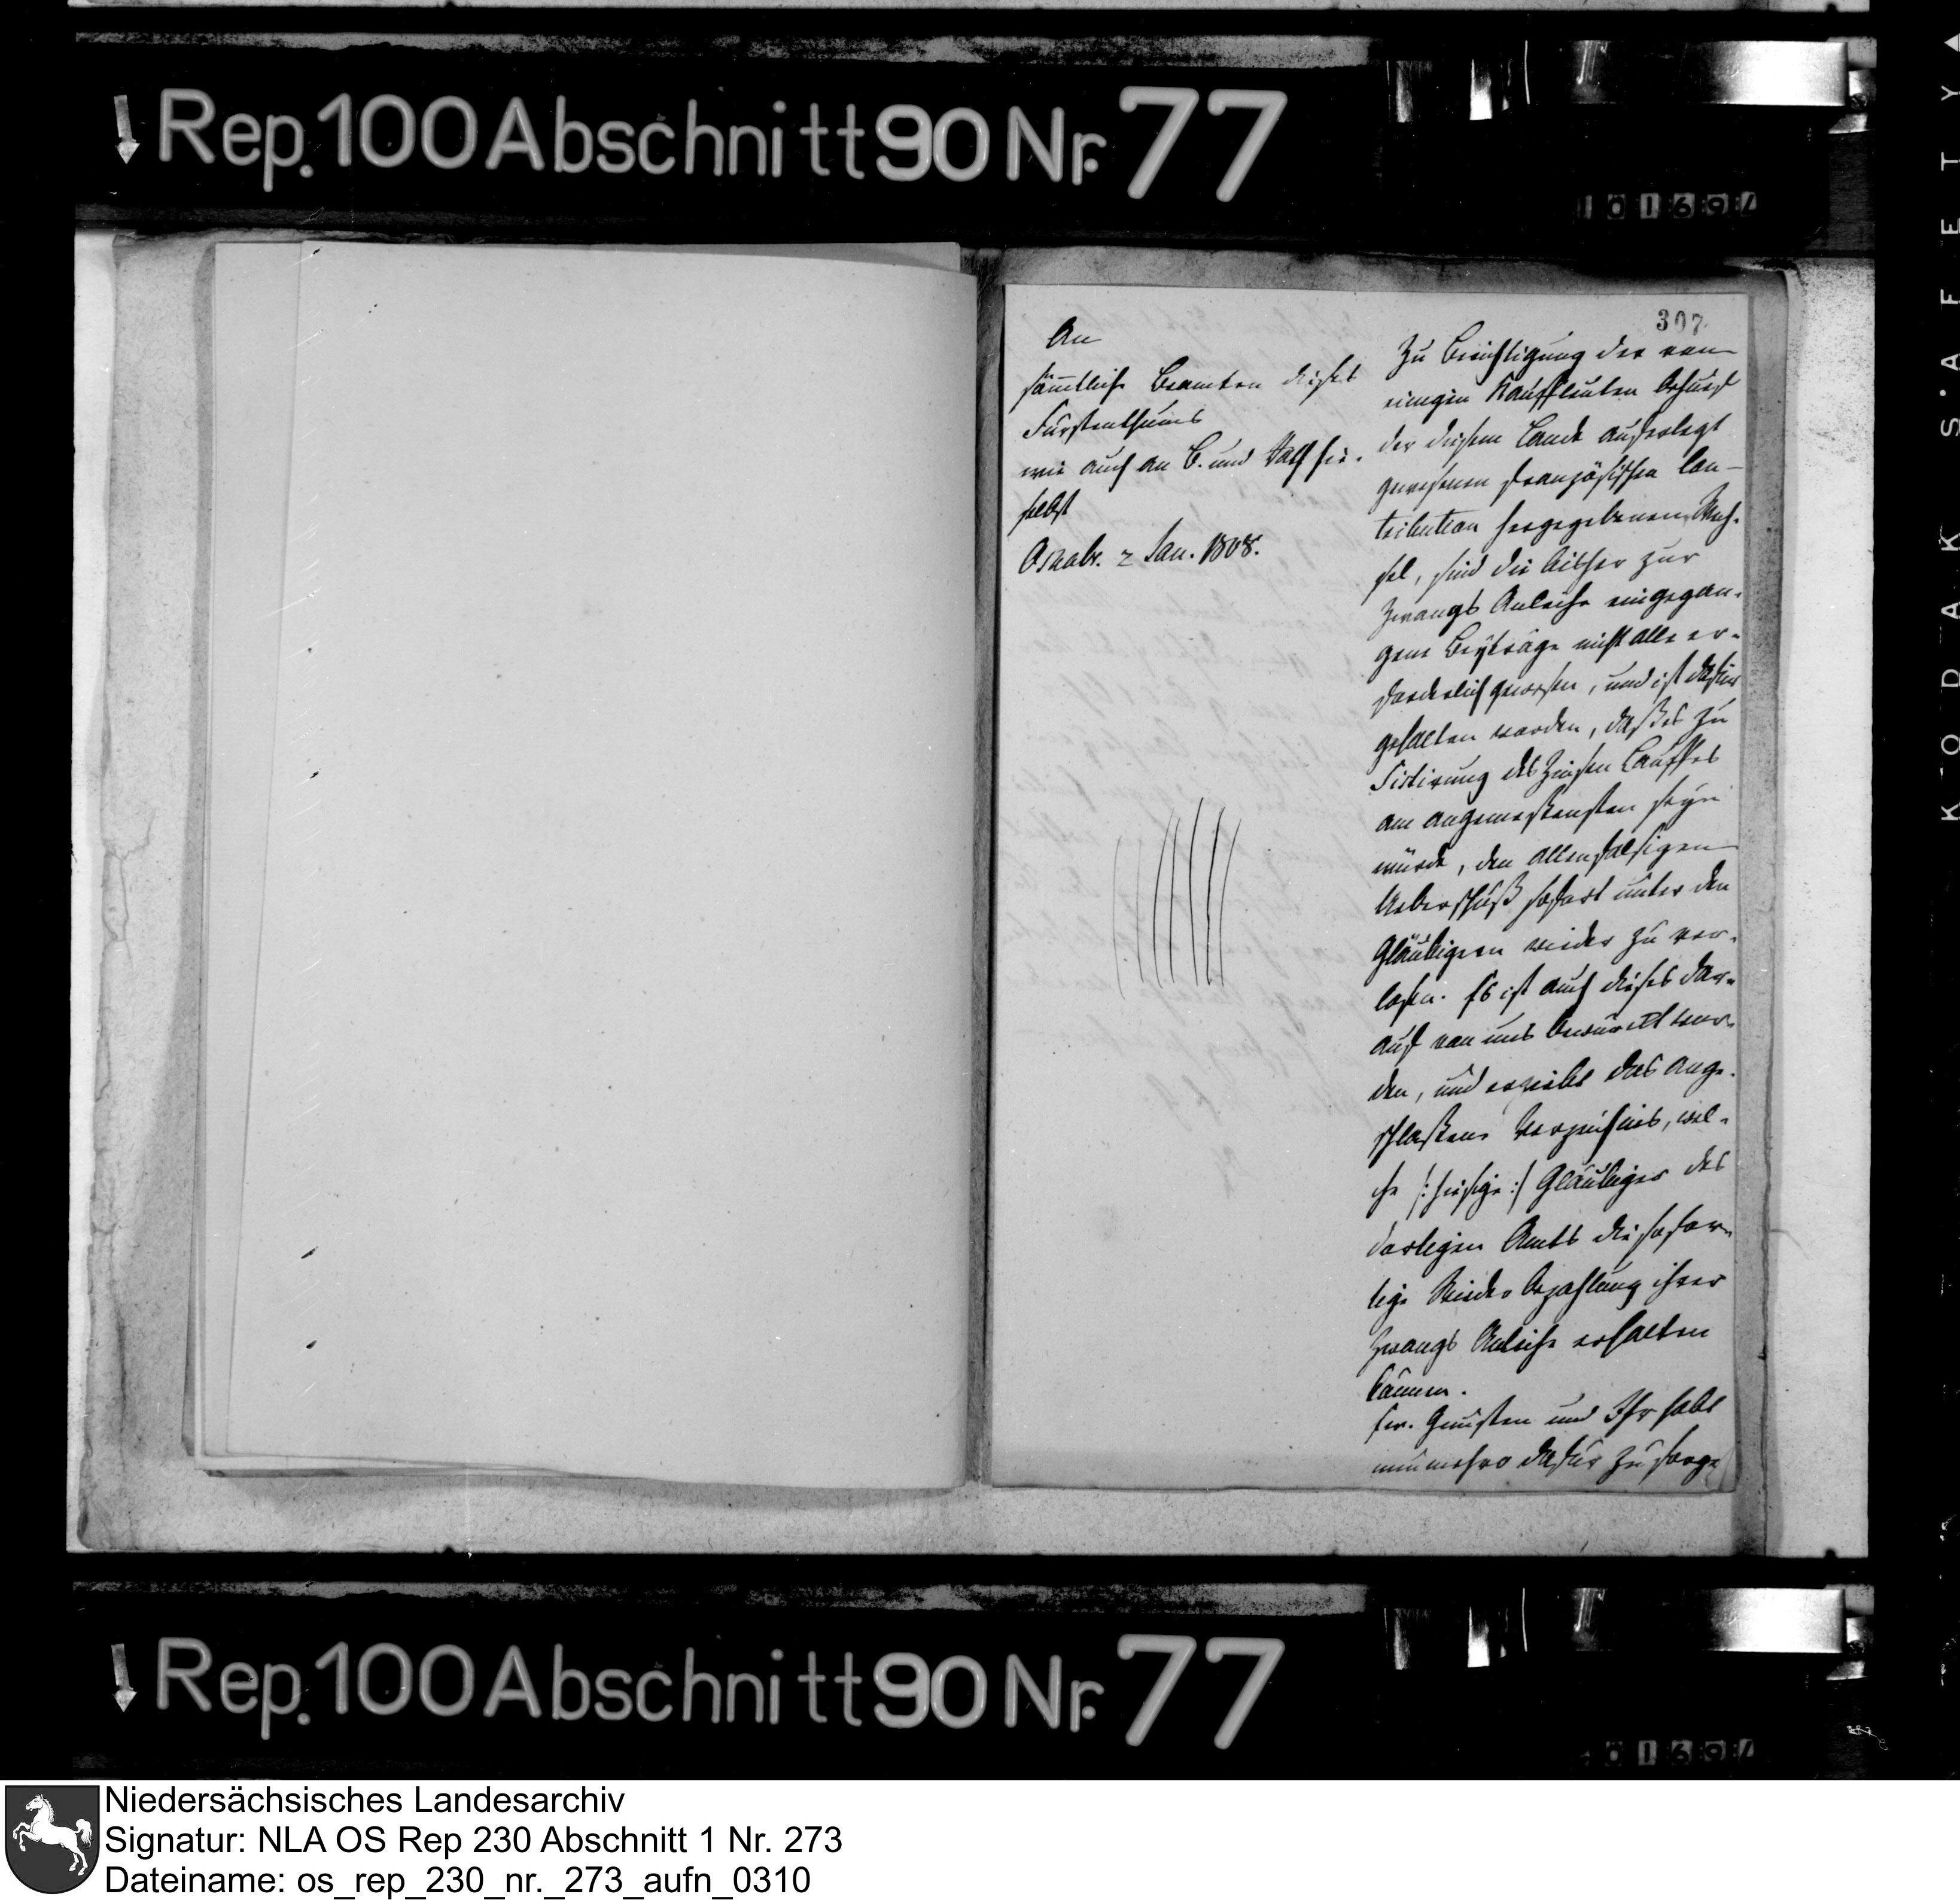 Rep. 100 Abschnitt 90 Nr. 77
10169/
KODAK SAFETY
307
An
sämtliche Beamten dieses
Fürstenthums
wie auch an B. und Rath hie-
selbst
Osnabr. 2 Jan. 1808.
Zu Berichtigung der von
einigen Kauffleuten behuef
der diesem Lande auferlegt
gewesenen französischen Con-
tribution hergegebenen Wech-
sel, sind die bisher zur
Zwangs Anleihe eingegan-
gene Beyträge nicht alle er-
forderlich gewesen, und ist dafür
gehalten worden, daß es zu
Sistirung des Zinsen Lauffes
am angemessensten seyn
würde, den allenfalsigen
Ueberschuß sofort unter den
Gläubigern wieder zu ver-
losen. Es ist auch dieses dar-
auf von uns bewürckt wor-
den, und ergiebt das ange-
schlossene Verzeichnis, wel-
che /: hiesige :/ Gläubiger des
dortigen Amts die sofor-
tige Wieder Bezahlung ihrer
Zwangs Anleihe erhalten
können.
Ew. Gunsten und Ihr habt
nunmehro dafür zu sorge
Rep. 100 Abschnitt 90 Nr. 77
0169/
Niedersächsisches Landesarchiv
Signatur: NLA OS Rep 230 Abschnitt 1 Nr. 273
Dateiname: os_rep_230_nr._273_aufn_0310